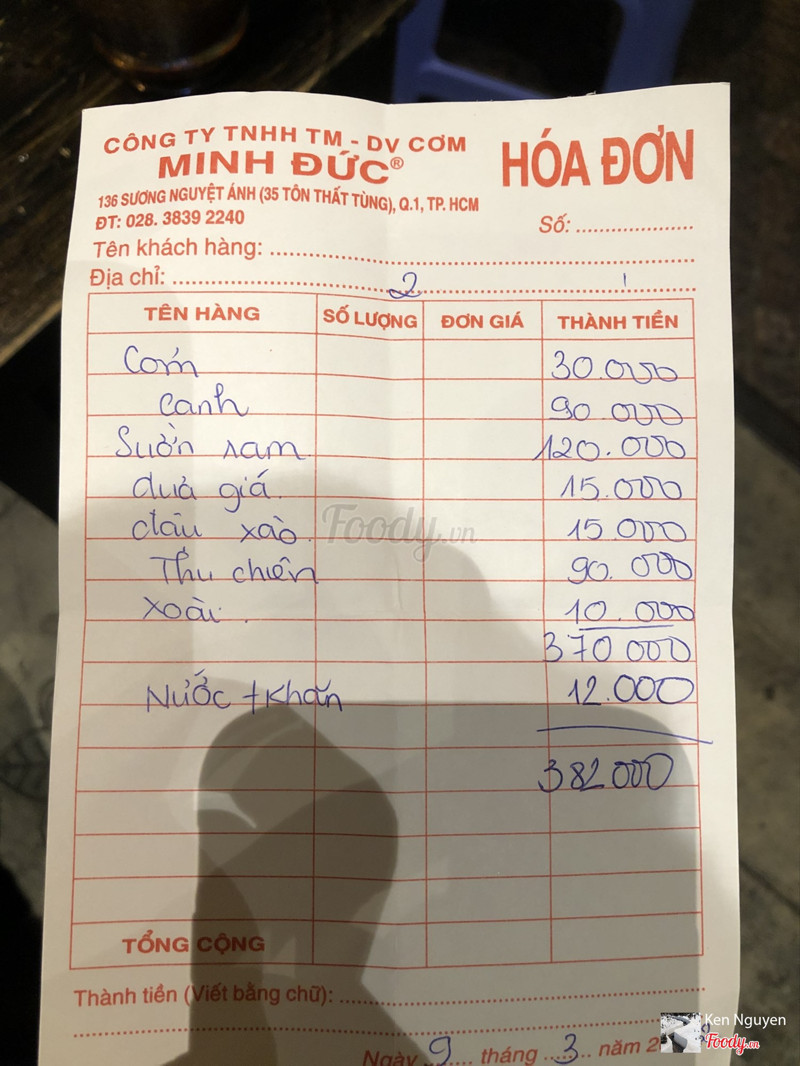 CÔNG TY TNHH TM - DV CƠM
MINH ĐỨC®
HÓA ĐƠN
136 SƯƠNG NGUYỆT ÁNH (35 TÔN THẤT TÙNG), Q.1, TP. HCM
ĐT: 028. 3839 2240
Số: ....................
Tên khách hàng: ....................
Địa chỉ: .................... 2 ....................
TÊN HÀNG SỐ LƯỢNG ĐƠN GIÁ THÀNH TIỀN
Cơm 30.000
canh 90.000
Sườn ram 120.000
dưa giá 15.000
đậu xào 15.000
Foody.vn
Thu chiên 90.000
xoài 10.000
370000
Nước + Khăn 12.000
382000
TỔNG CỘNG
Thành tiền (Viết bằng chữ): ....................
Ngày 9 tháng 3 năm 2
Ken Nguyen
Foody.vn